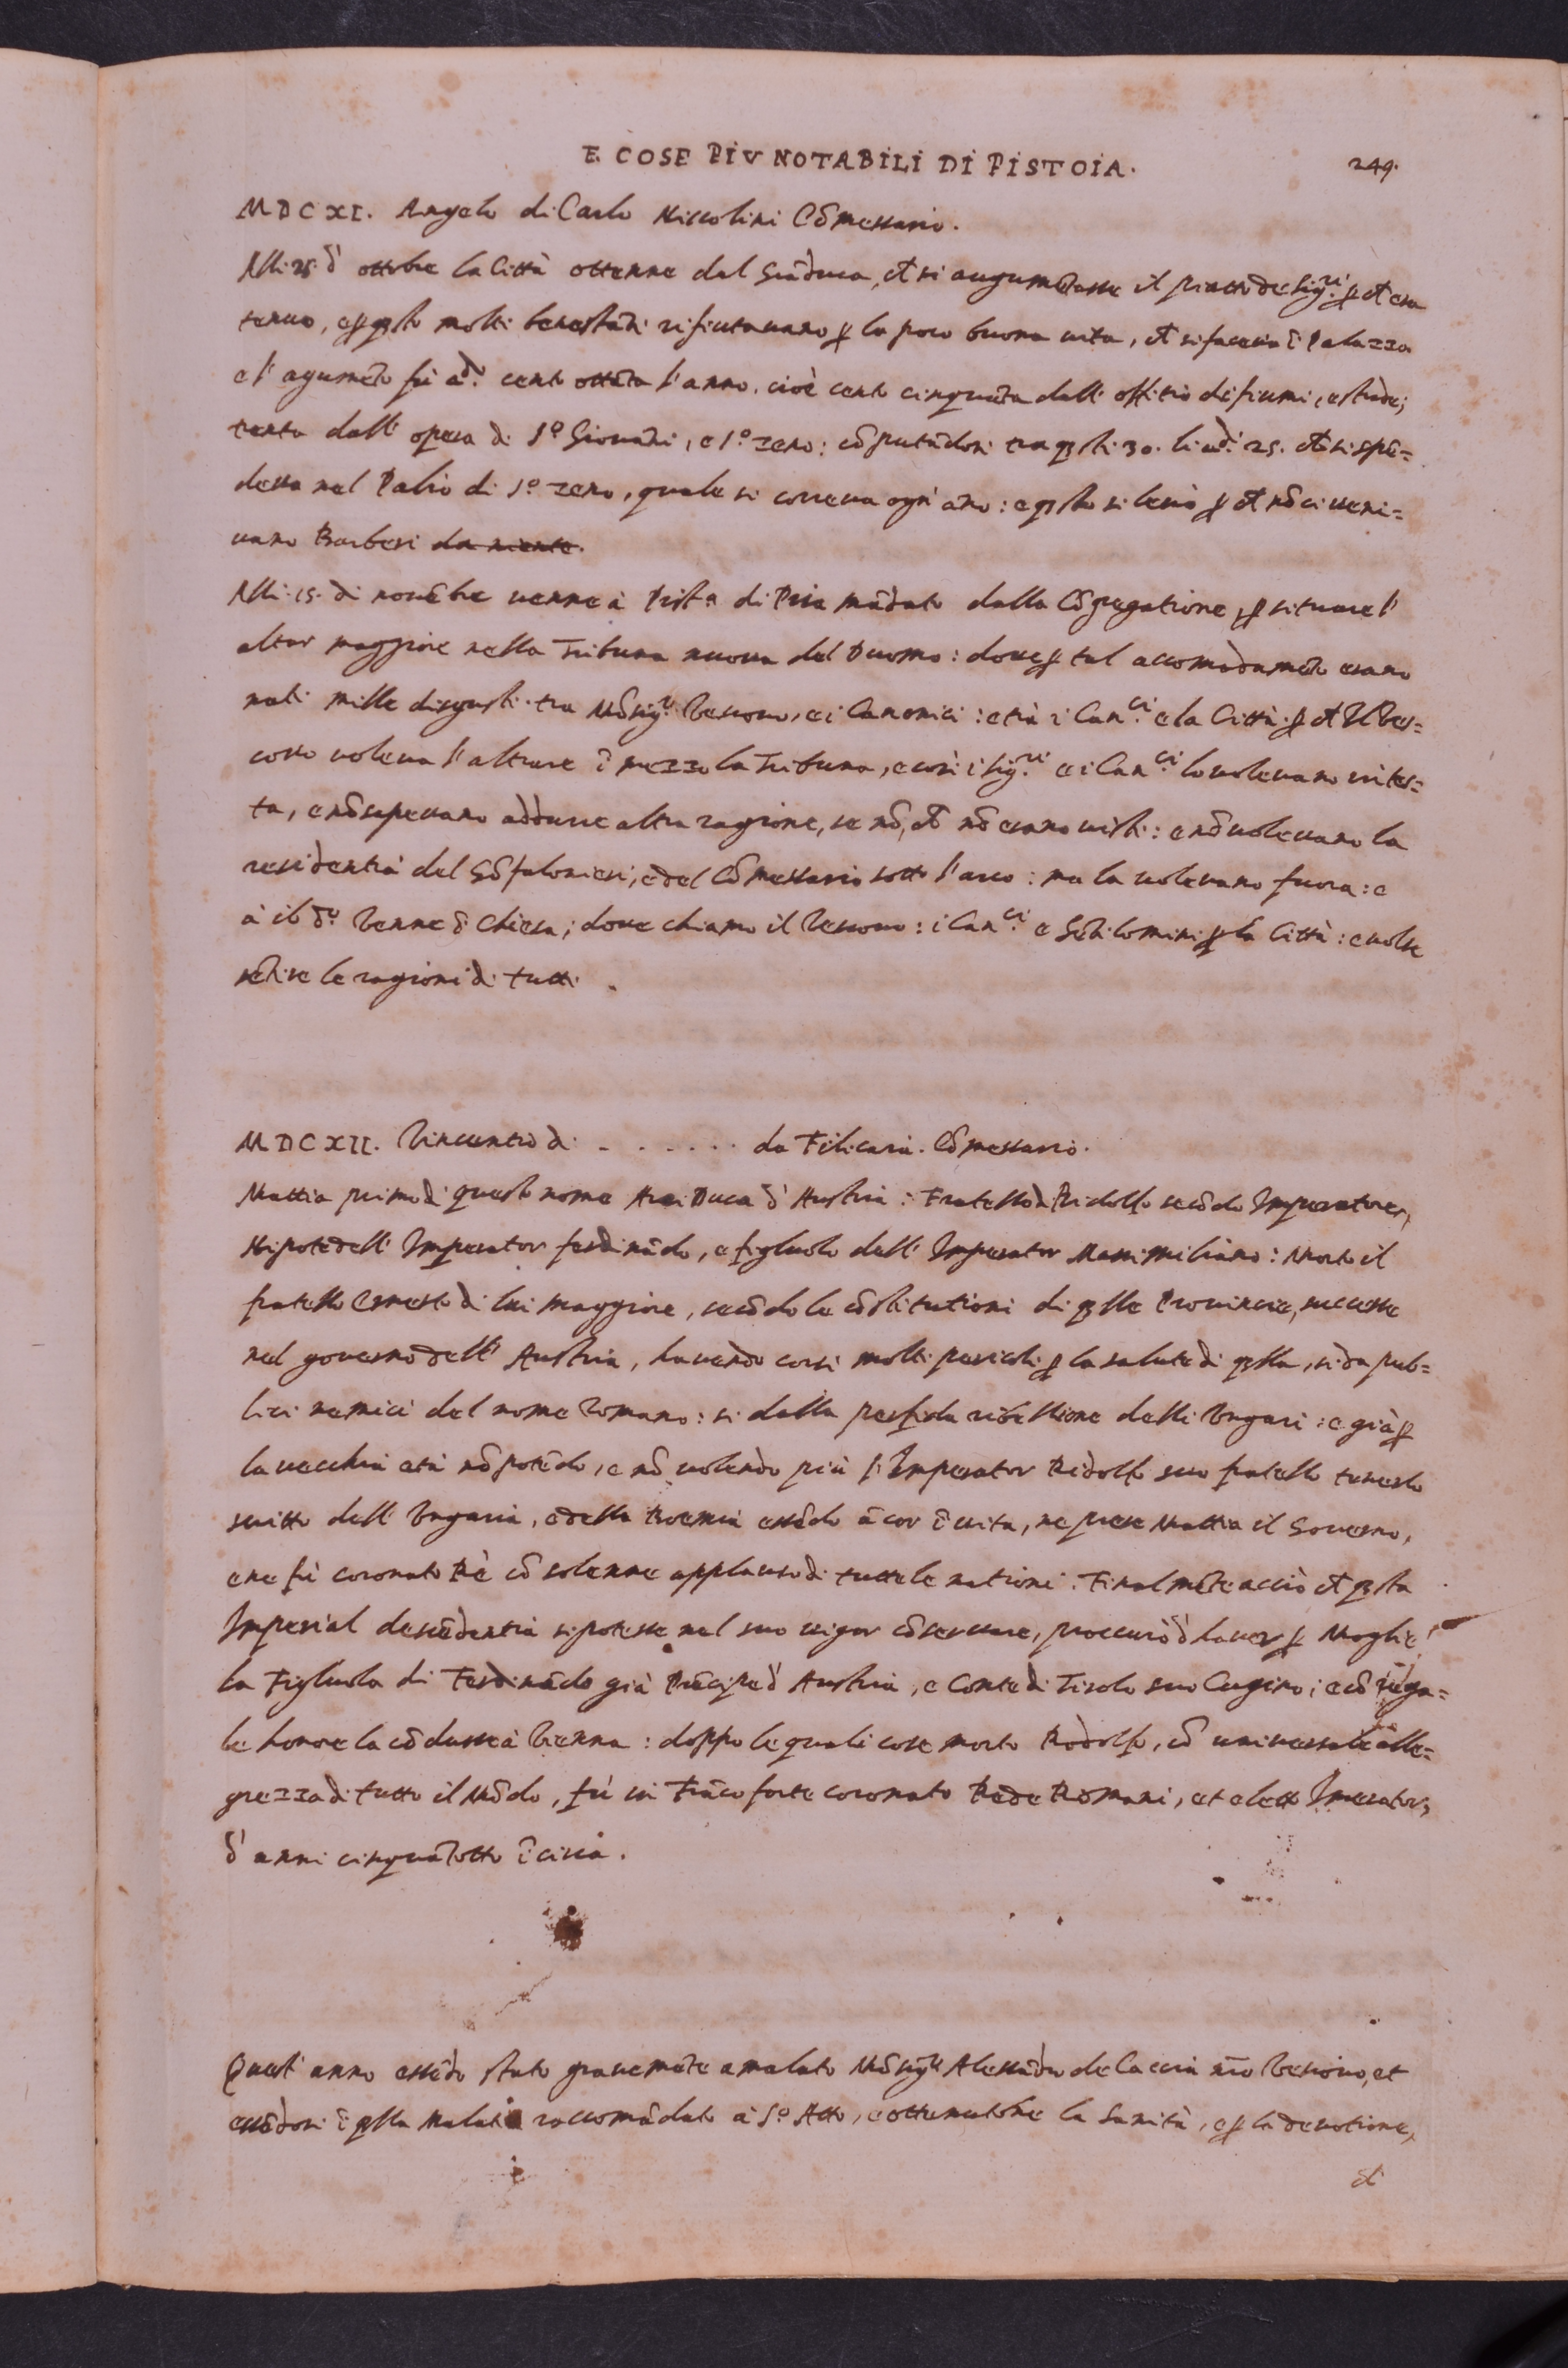 E COSE PIV NOTABILI DI PISTOIA. 249.
MDCXI. Angelo di Carlo Niccolini Cōmessario.
Alli 25. d' ottobre la Città ottenne dal Grāduca, ch si augumētasse il piatto de Sig.ri ꝑ ch era
tenue, e ꝑ qsto molti benestāti rifiutauano ꝑ la poco buona uita, ch si faceua ī Palazzo
e l' agumēto fù a di. cento ottāta l' anno. cioè cento cinquāta dall' offitio de fiumi, e strade;
trenta dall' opera di S.o Giouāni, e S.o Zeno: cōputādosi tra qsti 30. li di. 25. ch si spē=
deua nel Palio di S.o Zeno, quale si correua ogn' āno: e qsto si leuò ꝑ ch nō ci ueni=
uano Barberi da niente.
Alli 15. di nouēbre uenne à Pist.a di Pisa mādato dalla Cōgregatione, ꝑ situare l'
altar maggiore nella Tribuna nuoua del Duomo: doue ꝑ tal accomodamēto erano
nati mille disgusti tra Mōsig.r Vescouo, e i Canonici: e trà i Can.ci e la Città ꝑ ch il Ves=
couo uoleua l' altare ī mezzo la Tribuna, e così i Sig.ri e i Can.ci lo uoleuano in tes=
ta, e nō sapeuano addurre altra ragione, se nō, ch nō erano uisti: e nō uoleuano la
residentia del Gōfalonieri, e del Cōmessario sotto l' arco: ma la uoleuano fuora: e
à il d.o Venne ī Chiesa; doue chiamò il Vescouo: i Can.ci e Gētilomini ꝑ la Città: e uolse
sētire le ragioni di tutti.
MDCXII. Vincentio di . . . . . . da Filicaia. Cōmessario.
Mattia primo di questo nome Arci Duca d' Austria: Fratello di Ridolfo secōdo Imperatore,
Nipote dell' Imperator ferdināndo, e figluolo dell' Imperator Massimiliano: Morto il
fratello Ernesto di lui maggiore, secōdo le cōstitutioni di qlle Prouincie, successe
nel gouerno dell' Austria, hauendo corsi molti pericoli ꝑ la salute di qlla, si da pub=
lici nemici del nome romano: si dalla perfida ribellione delli Vngari: e già ꝑ
la uecchia età nō potēdo, e nō uolendo più l' Imperator Ridolfo suo fratello tenerlo
scritto dell' Vngaria, e della Boemia essēdo ācor ī uita, ne prese Mattia il Gouerno,
e ne fù coronato Rè cō solenne applauso di tutte le nationi. Finalmēte acciò ch qsta
Imperial descēdentia si potesse nel suo uigor cōseruare, proccurò d' hauer ꝑ Moglie
la Figluola di Ferdināndo già Prīcipe d' Austria, e Conte di Tirolo suo Cugino; e cō rega=
le honore la cōdusse à Vienna: doppo le quali cose morto Rodolfo, cō uniuersale alle=
grezza di tutto il Mōdo, fù in Frācoforte coronato Re de Romani, et eletto Imerator,
d' anni cinquātotto ī circa.
Quest' anno essēdo stato grauemēte amalato Mōsig.r Alessādro del Caccia nro Vescouo, et
essēdosi ī qlla malatia raccomādato à S.o Atto, e ottenutone la sanità, e ꝑ la deuotione,
ch